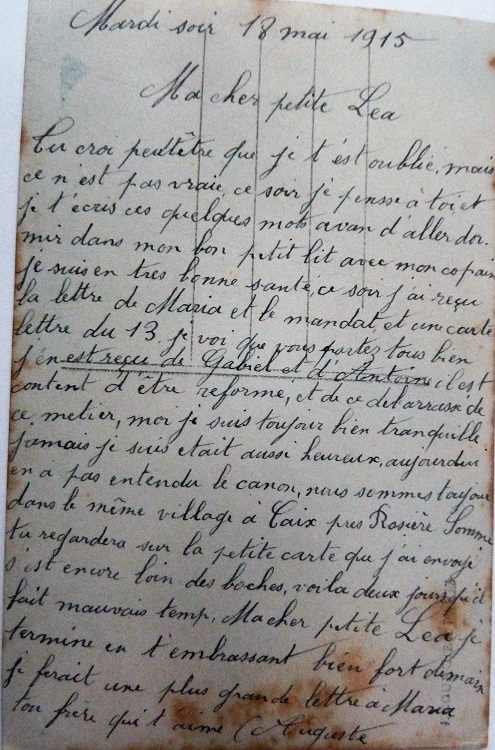 Mardi soir 18 mai 1915
Ma cher petite Lea
Tu croi peutêtre que je t'ést oublie, mais
ce n'est pas vraie, ce soir je pensse à toi et
je t'écris ces quelques mots avan d'aller dor-
mir dans mon bon petit lit avec mon copain
je suis en tres bonne santé, ce soir j'ai reçu
la lettre de Maria et le mandat, et une carte
lettre du 13 je voi que vous portez tous bien
j'én est reçu de Gabiel et d'Antoine il est
content d'être reforme, et de ce debarrasse de
ce metier, moi je suis toujour bien tranquille
jamais je suis etait aussi heureux, aujourdui
en a pas entendu le canon, nous sommes toujour
dans le même village à Caix pres Rosière Somme
tu regardera sur la petite carte que j'ai envoyé
s'ést encore loin des boches, voila deux jours qu'il
fait mauvais temp, Ma cher petite Lea je
termine en t'embrassant bien fort demain
je ferait une plus grande lettre à Maria
ton frère qui t'aime Auguste